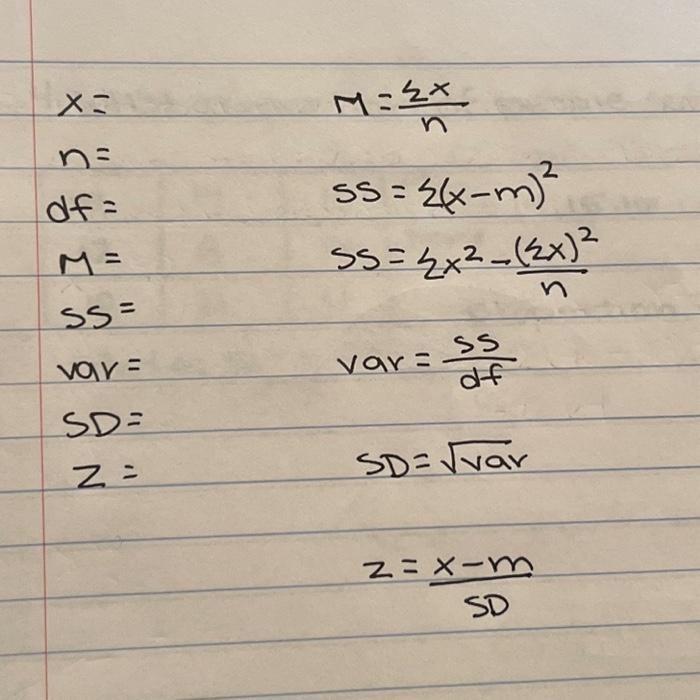 x =
n =
df =
M =
SS =
var =
SD =
Z =
M = Σx / n
SS = Σ(x-m)²
SS = Σx² - (Σx)² / n
var = SS / df
SD = √var
z = x-m / SD